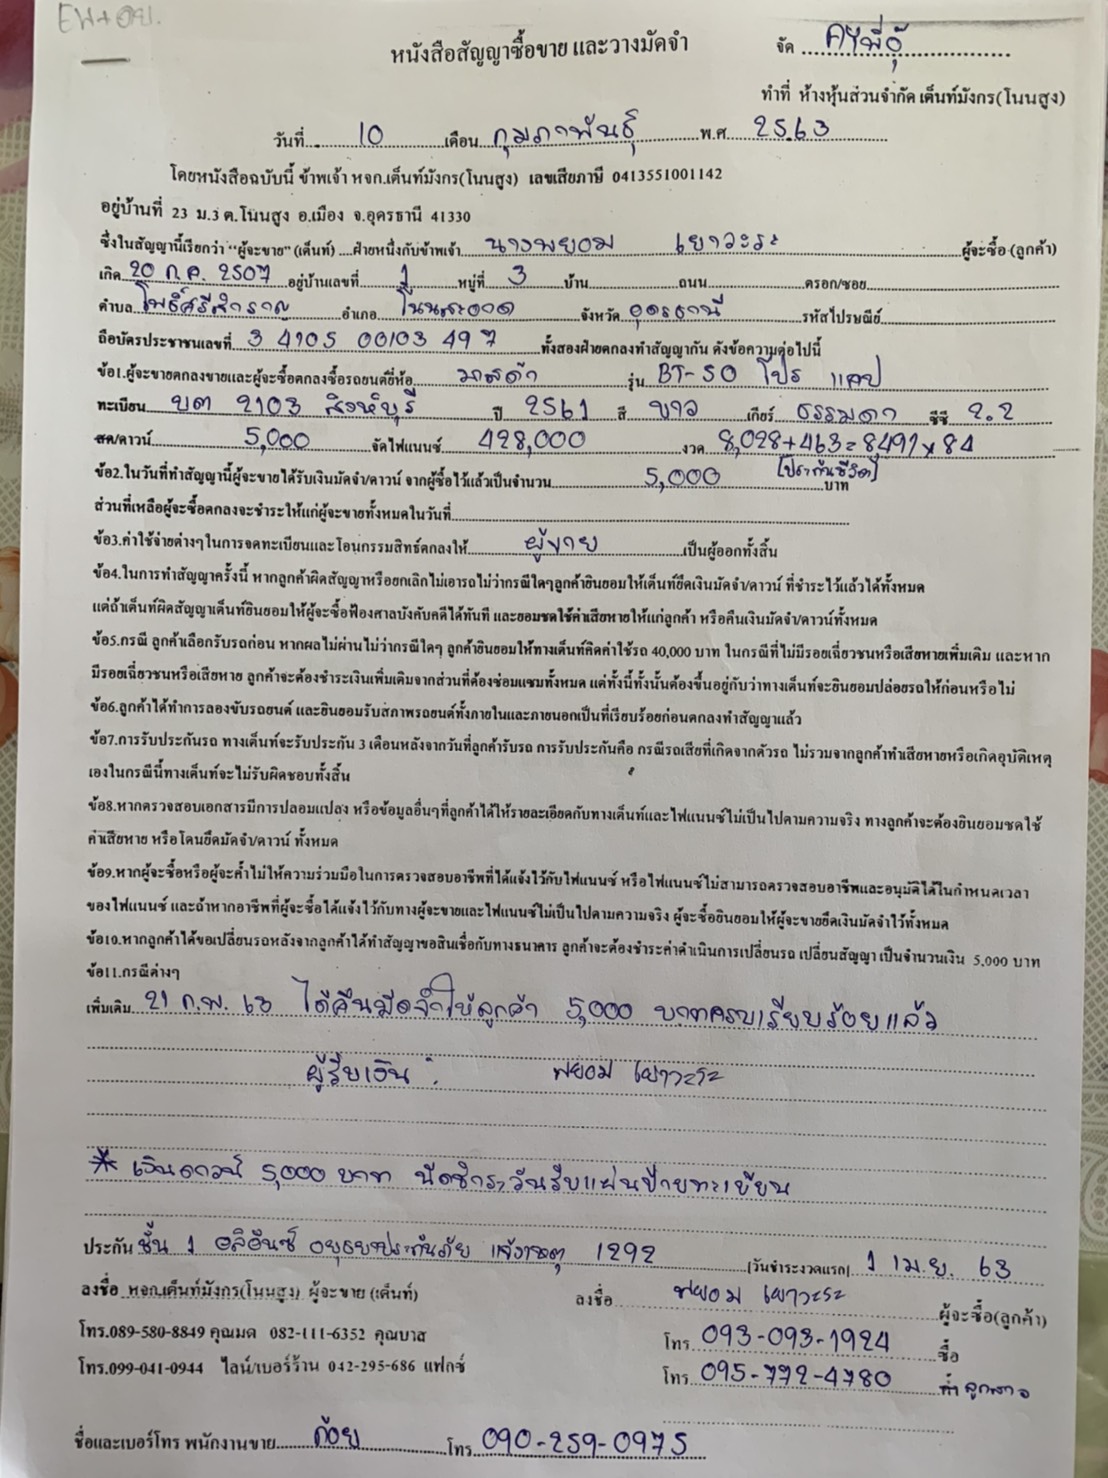 EW+อย.
หนังสือสัญญาซื้อขาย และวางมัดจำ
จัด ศรีพี่อุ้
ทำที่ ห้างหุ้นส่วนจำกัด เต็นท์มังกร(โนนสูง)
วันที่ 10 เดือน กุมภาพันธุ์ พ.ศ. 2563
โดยหนังสือฉบับนี้ ข้าพเจ้า หจก.เต็นท์มังกร(โนนสูง) เลขเสียภาษี 0413551001142
อยู่บ้านที่ 23 ม.3 ต.โนนสูง อ.เมือง จ.อุดรธานี 41330
ซึ่งในสัญญานี้เรียกว่า "ผู้จะขาย" (เต็นท์) ....ฝ่ายหนึ่งกับข้าพเจ้า นางพยอม เยาวะระ ผู้จะซื้อ (ลูกค้า)
เกิด 20 ก.ค. 2507 อยู่บ้านเลขที่ 1 หมู่ที่ 3 บ้าน ถนน ตรอก/ซอย
ตำบล โพธิ์ศรีสำราญ อำเภอ โนนสะอาด จังหวัด อุดรธานี รหัสไปรษณีย์
ถือบัตรประชาชนเลขที่ 3 4105 00103 497 ทั้งสองฝ่ายตกลงทำสัญญากัน ดังข้อความต่อไปนี้
ข้อ1.ผู้จะขายตกลงขายและผู้จะซื้อตกลงซื้อรถยนต์ยี่ห้อ มาสด้า รุ่น BT-50 โปร แคป
ทะเบียน บต 2103 สิงห์บุรี ปี 2561 สี ขาว เกียร์ ธรรมดา ซีซี 2.2
สด/ดาวน์ 5,000 จัดไฟแนนซ์ 428,000 งวด 8,028+463=8,491x84
(ประกันชีวิต)
ข้อ2.ในวันที่ทำสัญญานี้ผู้จะขายได้รับเงินมัดจำ/ดาวน์ จากผู้ซื้อไว้แล้วเป็นจำนวน 5,000 บาท
ส่วนที่เหลือผู้จะซื้อตกลงจะชำระให้แก่ผู้จะขายทั้งหมดในวันที่
ข้อ3.ค่าใช้จ่ายต่างๆในการจดทะเบียนและโอนกรรมสิทธ์ตกลงให้ ผู้ขาย เป็นผู้ออกทั้งสิ้น
ข้อ4.ในการทำสัญญาครั้งนี้ หากลูกค้าผิดสัญญาหรือยกเลิกไม่เอารถไม่ว่ากรณีใดๆลูกค้ายินยอมให้เต็นท์ยึดเงินมัดจำ/ดาวน์ ที่ชำระไว้แล้วได้ทั้งหมด
แต่ถ้าเต็นท์ผิดสัญญาเต็นท์ยินยอมให้ผู้จะซื้อฟ้องศาลบังคับคดีได้ทันที และยอมชดใช้ค่าเสียหายให้แก่ลูกค้า หรือคืนเงินมัดจำ/ดาวน์ทั้งหมด
ข้อ5.กรณี ลูกค้าเลือกรับรถก่อน หากผลไม่ผ่านไม่ว่ากรณีใดๆ ลูกค้ายินยอมให้ทางเต็นท์คิดค่าใช้รถ 40,000 บาท ในกรณีที่ไม่มีรอยเฉี่ยวชนหรือเสียหายเพิ่มเติม และหาก
มีรอยเฉี่ยวชนหรือเสียหาย ลูกค้าจะต้องชำระเงินเพิ่มเติมจากส่วนที่ต้องซ่อมแซมทั้งหมด แต่ทั้งนี้ทั้งนั้นต้องขึ้นอยู่กับว่าทางเต็นท์จะยินยอมปล่อยรถให้ก่อนหรือไม่
ข้อ6.ลูกค้าได้ทำการลองขับรถยนต์ และยินยอมรับสภาพรถยนต์ทั้งภายในและภายนอกเป็นที่เรียบร้อยก่อนตกลงทำสัญญาแล้ว
ข้อ7.การรับประกันรถ ทางเต็นท์จะรับประกัน 3 เดือนหลังจากวันที่ลูกค้ารับรถ การรับประกันคือ กรณีรถเสียที่เกิดจากตัวรถ ไม่รวมจากลูกค้าทำเสียหายหรือเกิดอุบัติเหตุ
เองในกรณีนี้ทางเต็นท์จะไม่รับผิดชอบทั้งสิ้น
ข้อ8.หากตรวจสอบเอกสารมีการปลอมแปลง หรือข้อมูลอื่นๆที่ลูกค้าได้ให้รายละเอียดกับทางเต็นท์และไฟแนนซ์ไม่เป็นไปตามความจริง ทางลูกค้าจะต้องยินยอมชดใช้
ค่าเสียหาย หรือโดนยึดมัดจำ/ดาวน์ ทั้งหมด
ข้อ9.หากผู้จะซื้อหรือผู้จะค้ำไม่ให้ความร่วมมือในการตรวจสอบอาชีพที่ได้แจ้งไว้กับไฟแนนซ์ หรือไฟแนนซ์ไม่สามารถตรวจสอบอาชีพและอนุมัติได้ในกำหนดเวลา
ของไฟแนนซ์ และถ้าหากอาชีพที่ผู้จะซื้อได้แจ้งไว้กับทางผู้จะขายและไฟแนนซ์ไม่เป็นไปตามความจริง ผู้จะซื้อยินยอมให้ผู้จะขายยึดเงินมัดจำไว้ทั้งหมด
ข้อ10.หากลูกค้าได้ขอเปลี่ยนรถหลังจากลูกค้าได้ทำสัญญาขอสินเชื่อกับทางธนาคาร ลูกค้าจะต้องชำระค่าดำเนินการเปลี่ยนรถ เปลี่ยนสัญญา เป็นจำนวนเงิน 5,000 บาท
ข้อ11.กรณีต่างๆ
เพิ่มเติม 21 ก.พ. 63 ได้คืนมัดจำให้ลูกค้า 5,000 บาทครบเรียบร้อยแล้ว
ผู้รับเงิน : พยอม เยาวะระ
* เงินดาวน์ 5,000 บาท นัดชำระวันรับแผ่นป้ายทะเบียน
ประกัน ชั้น 1 อลิอันซ์ อยุธยาประกันภัย แจ้งเหตุ 1292 (วันชำระงวดแรก) 1 เม.ย. 63
ลงชื่อ หจก.เต็นท์มังกร(โนนสูง) ผู้จะขาย (เต็นท์) ลงชื่อ พยอม เยาวะระ ผู้จะซื้อ(ลูกค้า)
โทร.089-580-8849 คุณมด 082-111-6352 คุณบาส โทร 093-093-1924 ซื้อ
โทร.099-041-0944 ไลน์/เบอร์ร้าน 042-295-686 แฟกซ์ โทร 095-772-4780 ค้ำ ลูกสาว
ชื่อและเบอร์โทร พนักงานขาย ก้อย โทร 090-259-0975